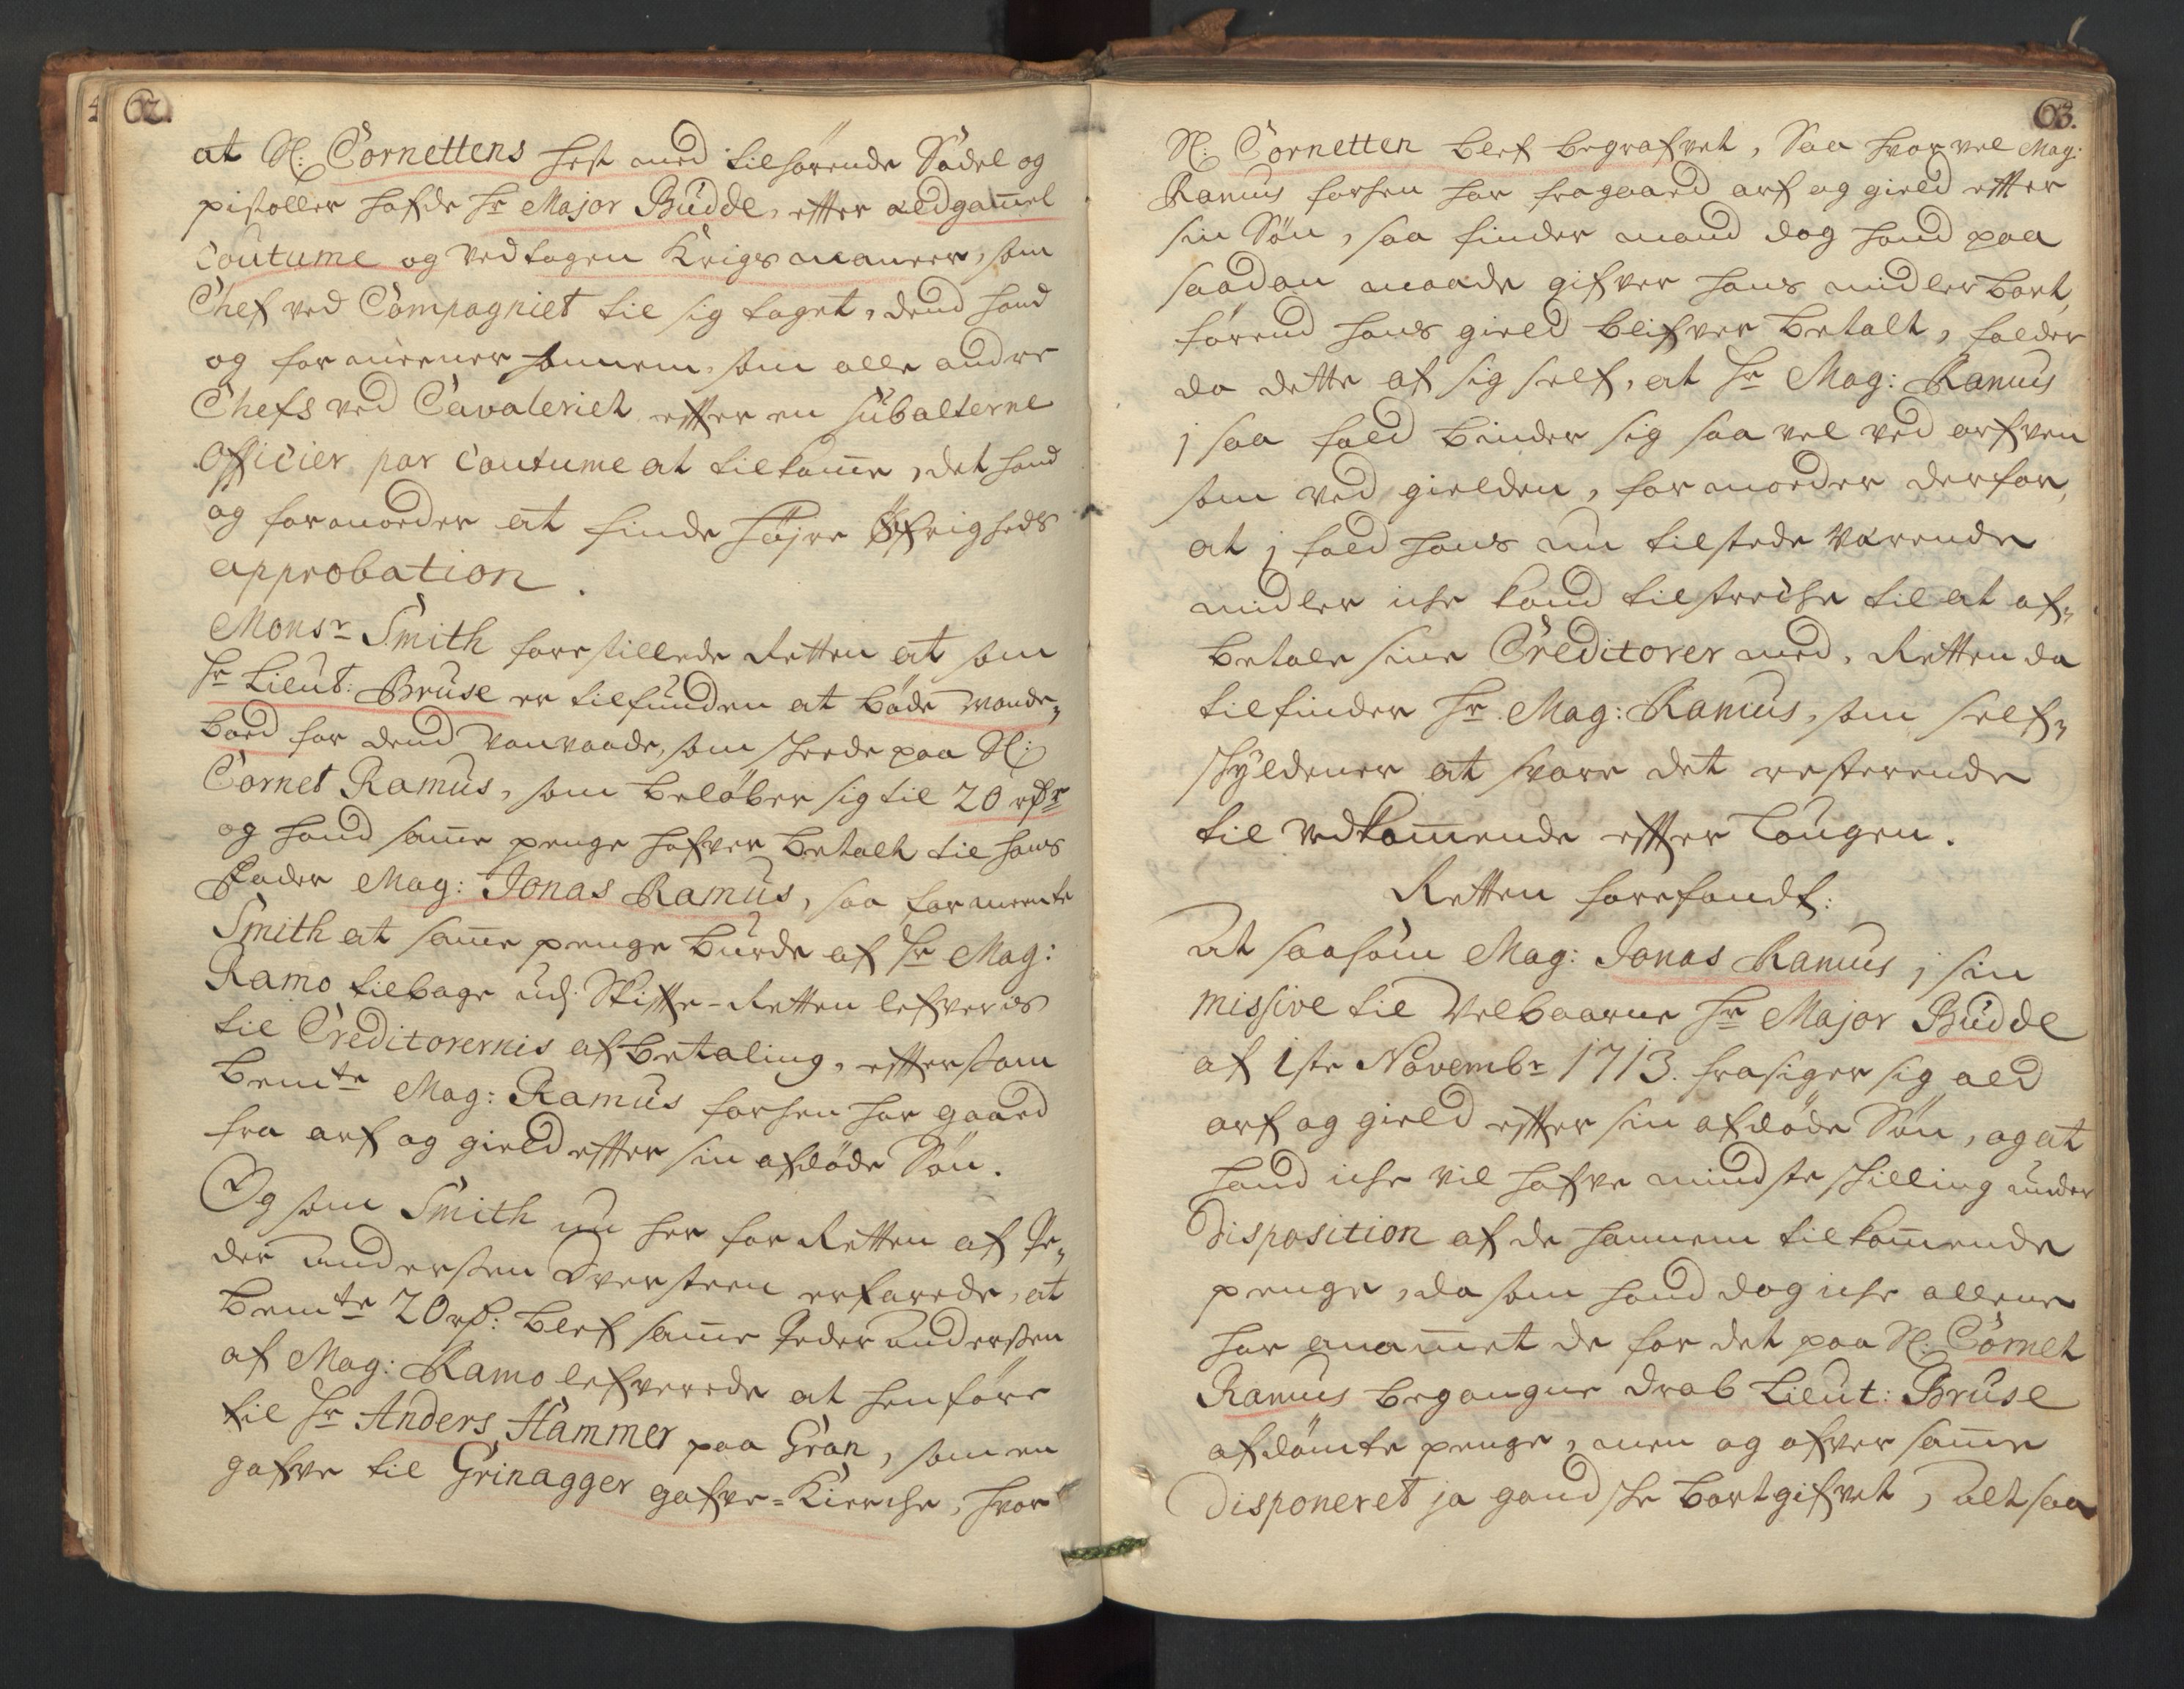 62.
at Sl: Cornettens Hest med tilhørende Sadel og
pistoller hafde Hr Major Budde, efter aldgam̄el
Coutume og vedtagen Krigs maneer, som
Chef ved Compagniet til sig taget, dend hand
og formeener hannem, som alle andre
Chefs ved Cavaleriet efter en subalterne
Officier par Coutume at tilkom̄e, det hand
og formoeder at finde Høyre Øfrigheds
approbation.
Monsr Smith forestillede Retten at som
Hr Lieut: Bruse er tilfunden at bøde Mande-
boed for dend vaavaade, som skeede paa Sl:
Cornet Ramus, som beløber sig til 20 rdr
og hand sam̄e penge hafver betalt til hans
Fader Mag: Jonas Ramus, saa formeente
Smith at sam̄e penge burde af Hr Mag:
Ramo tilbage udj Skifte-Retten lefveris
til Creditorernis afbetaling, eftersom
bemte Mag: Ramus forhen har gaaed
fra arf og gield efter sin afdøde Søn.
Og som Smith nu her for Retten af Pe-
der Andersen Oversteen erfarede, at
bemte 20 rd: blef sam̄e Peder Andersen
af Mag: Ramo lefverede at henføre
til Hr Anders Hammer paa Gran, som en
gafve til Grinagger gafve-Kierche, hvor
63.
Sl: Cornetten blef begrafvet, Saa hvorvel Mag:
Ramus forhen har fragaaed arf og gield efter
sin Søn, saa finder mand dog hand paa
saadan maade gifver hans midler bort,
førend hans gield blifver betalt, falder
da dette af sig self, at Hr Mag: Ramus
j saa fald binder sig saa vel ved arfven
som ved gielden, formoeder derfor,
at j fald hans nu tilstede værende
midler iche kand tilstreche til at af-
betale sine Creditorer med, Retten da
tilfinder Hr Mag: Ramus, som self-
skyldener at svare det resterende
til vedkom̄ende efter Lougen.
Retten forefandt:
At saasom Mag: Jonas Ramus j sin
missive til Velbaarne Hr Major Budde
af 1ste Novembr 1713. frasiger sig ald
arf og gield efter sin afdøde Søn, og at
hand iche vil hafve mindste skilling under
Disposition af de hannem tilkom̄ende
penge, da som hand dog iche alleene
har anam̄et de for det paa Sl: Cornet
Ramus begangne drab Lieut: Bruse
afdømte penge, men og ofver sam̄e
Disponeret ja gandske bortgifvet, Altsaa